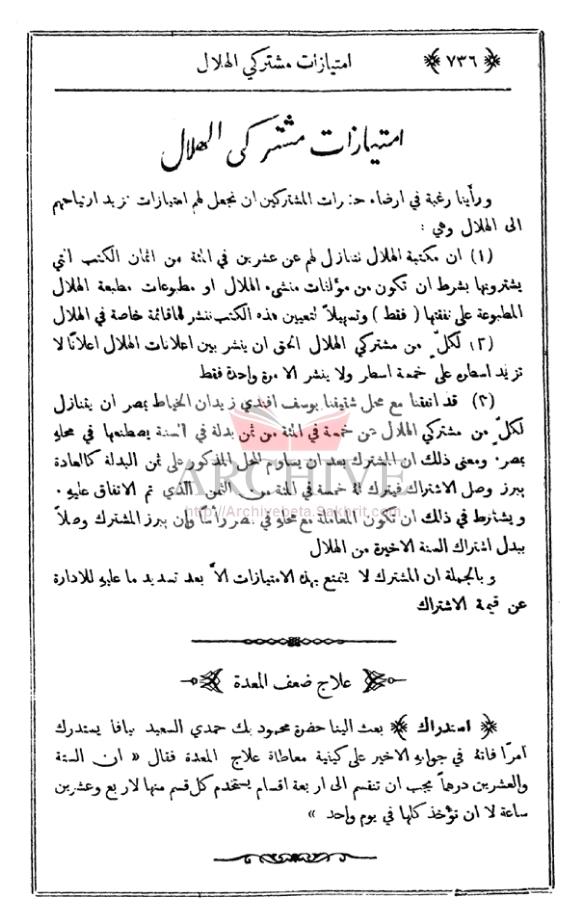 ﴿ ٧٣٦ ﴾ امتيازات مشتركي الهلال
امتيازات مشتركي الهلال
ورأينا رغبة في ارضاء حضرات المشتركين ان نجعل لهم امتيازات تزيد ارتياحهم
الى الهلال وهي :
(١) ان مكتبة الهلال تتنازل لهم عن عشرين في المئة من اثمان الكتب التي
يشترونها بشرط ان تكون من مؤلفات منشىء الهلال او مطبوعات مطبعة الهلال
المطبوعة على نفقتها ( فقط ) وتسهيلاً لتعيين هذه الكتب ننشر لها قائمة خاصة في الهلال
(٢) لكلّ من مشتركي الهلال الحق ان ينشر بين اعلانات الهلال اعلانًا لا
تزيد اسطره على خمسة اسطر ولا ينشر الا مرة واحدة فقط
(٣) قد اتفقنا مع محل شقيقنا يوسف افندي زيدان الخياط بمصر ان يتنازل
لكلّ من مشتركي الهلال عن خمسة في المئة من ثمن بدلة في السنة يصطنعها في محلهِ
بمصر. ومعنى ذلك ان المشترك بعد ان يساوم المحل المذكور على ثمن البدلة كالعادة
يبرز وصل الاشتراك فيترك لهُ خمسة في المئة من الثمن الذي تم الاتفاق عليهِ.
ويشترط في ذلك ان تكون المعاملة مع محلهِ في مصر رأسًا وان يبرز المشترك وصلاً
ببدل اشتراك السنة الاخيرة من الهلال
وبالجملة ان المشترك لا يتمتع بهذه الامتيازات الاّ بعد تسديد ما عليهِ للادارة
عن قيمة الاشتراك
ARCHIVE
http://Archivebeta.Sakhrit.com
علاج ضعف المعدة
﴿ استدراك ﴾ بعث الينا حضرة محمود بك حمدي السعيد بيافا يستدرك
امرًا فاتهُ في جوابهِ الاخير على كيفية معاطاة علاج المعدة فقال « ان الستة
والعشرين درهماً يجب ان تنقسم الى اربعة اقسام يستخدم كل قسم منها لاربع وعشرين
ساعة لا ان تؤخذ كلها في يوم واحد »